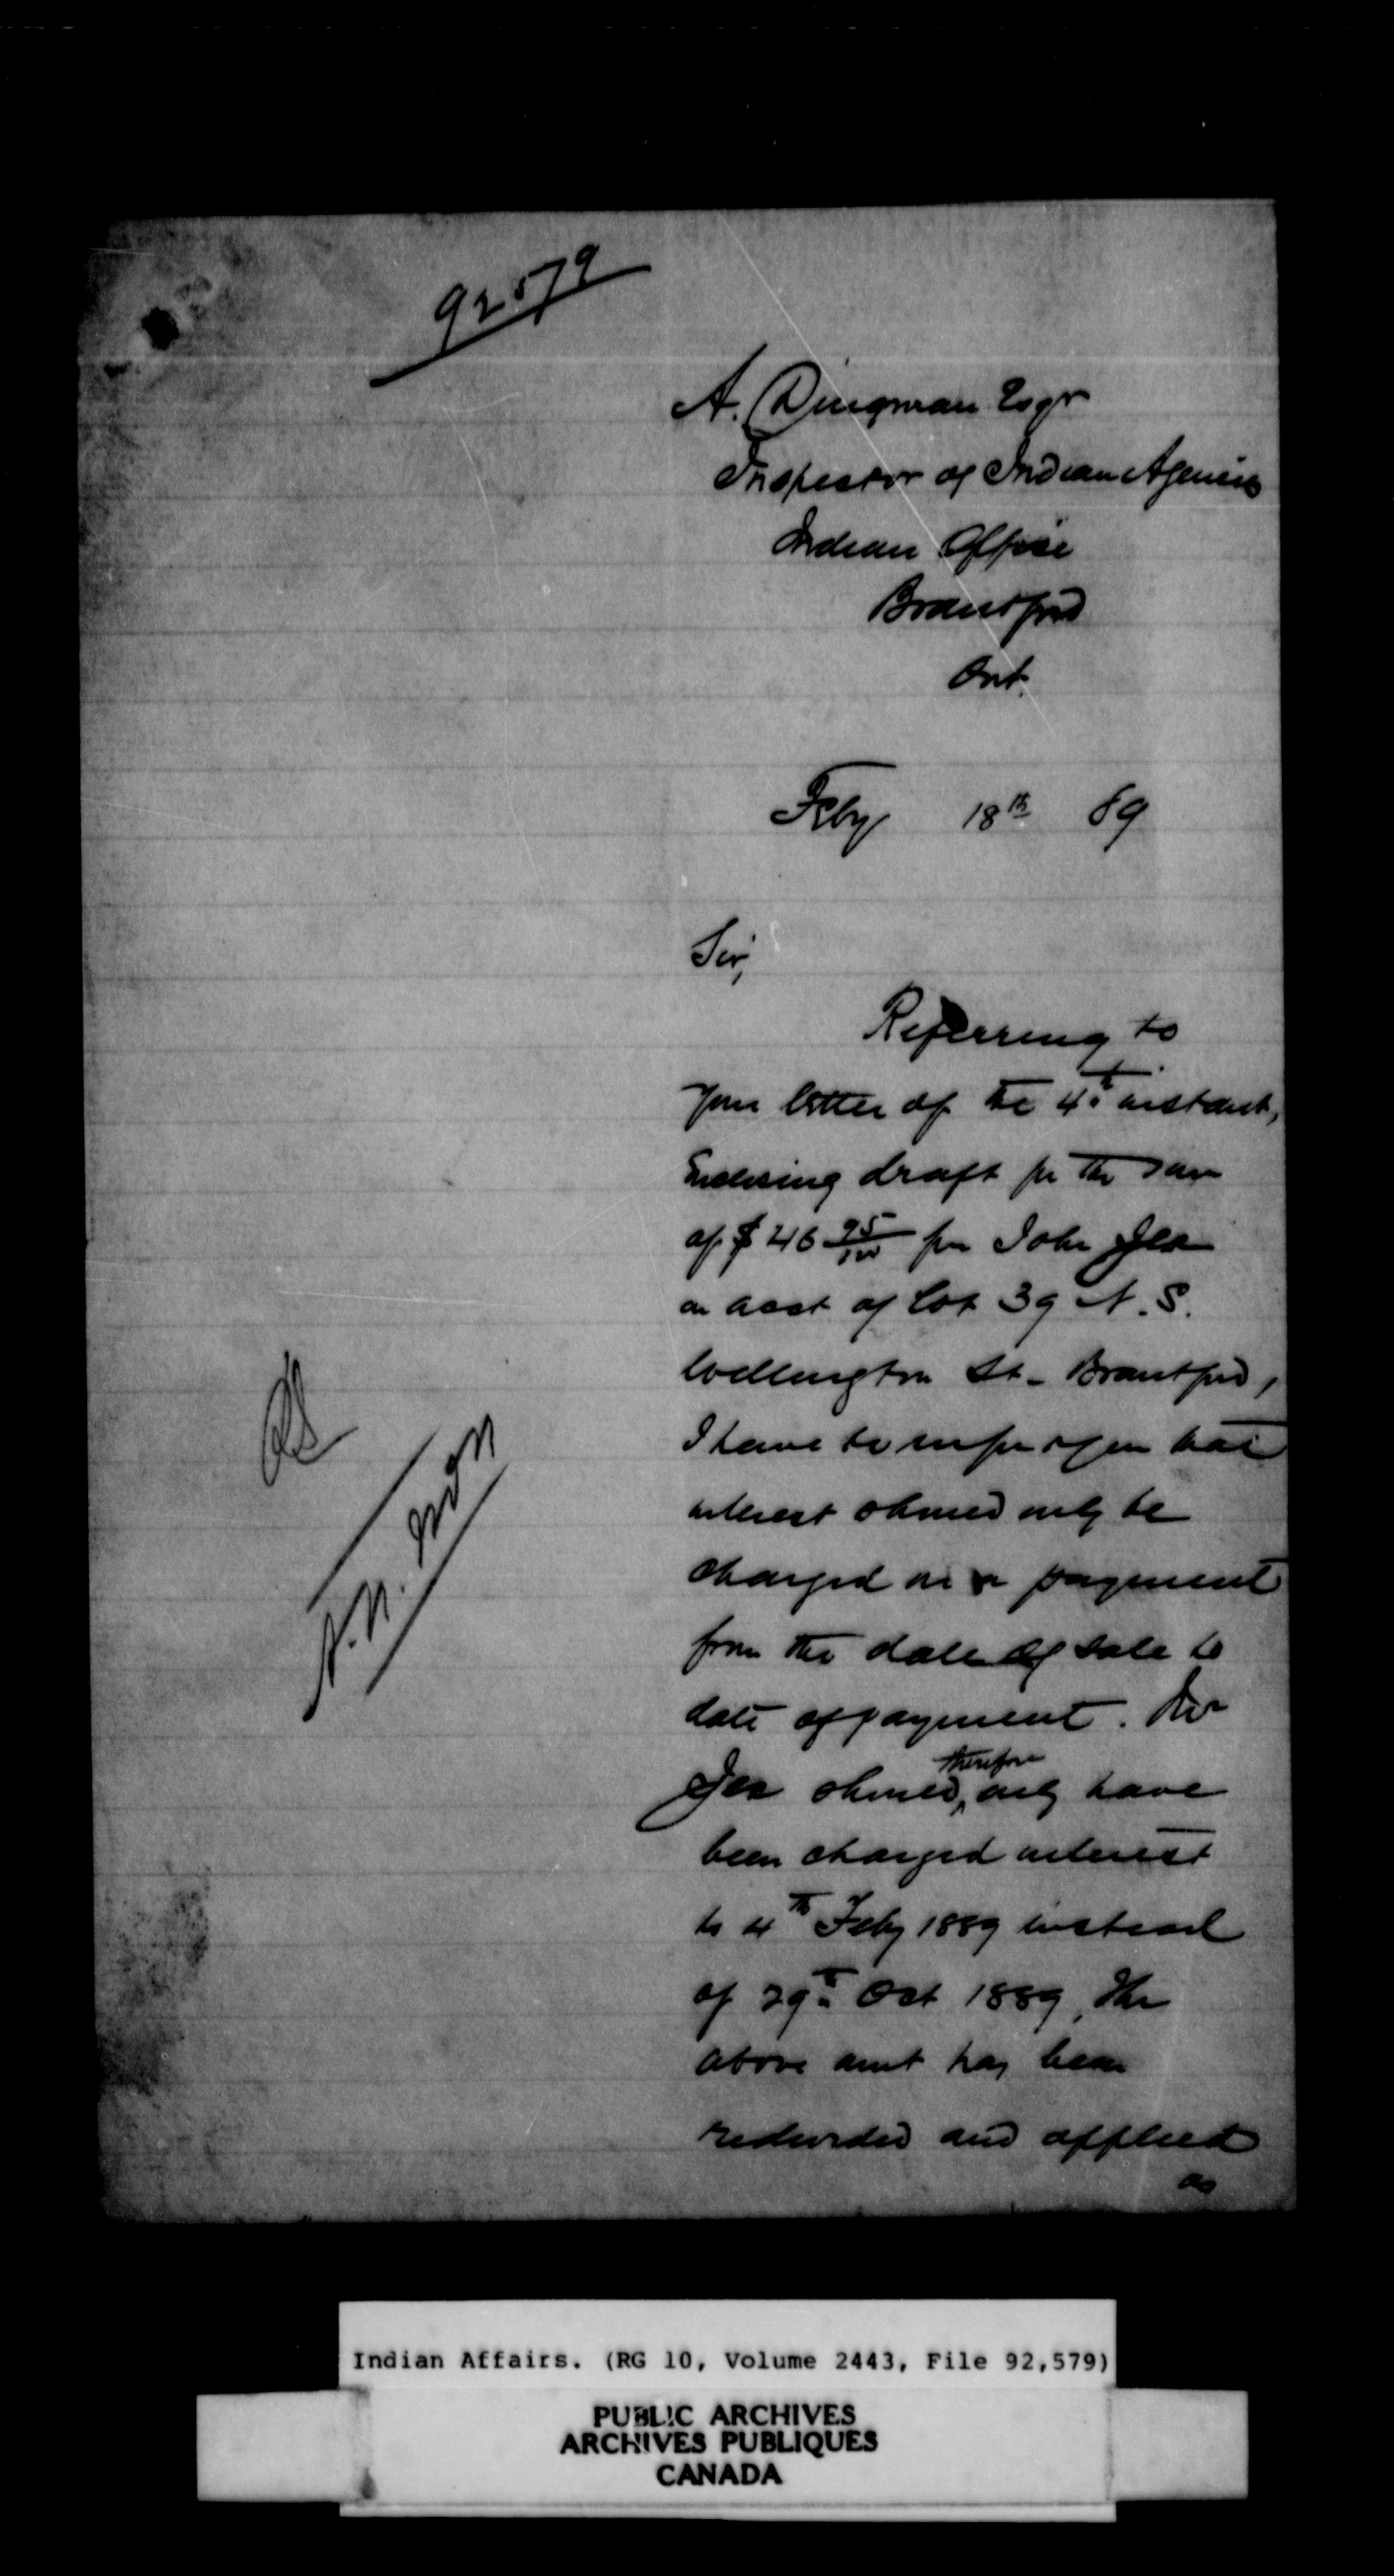 92579
A. Dingman Esqr
Inspector of Indian Agencies
Indian Office
Brantford
Ont.
Feby 18th 89
Sir,
Referring to
your letter of the 4th instant,
Enclosing draft for the sum
of $46 95/100 for John
on acct of lot 39 N. S.
Wellington St - Brantford,
I have to inform you that
interest should only be
charged on a payment
from the date of sale to
date of payment. Mr
should, therefore only have
been charged interest
to 4th Feby 1889 instead
of 29th Oct 1889, The
above amt has been
recorded and applied
as
Indian Affairs. (RG 10, Volume 2443, File 92,579)
PUBLIC ARCHIVES
ARCHIVES PUBLIQUES
CANADA